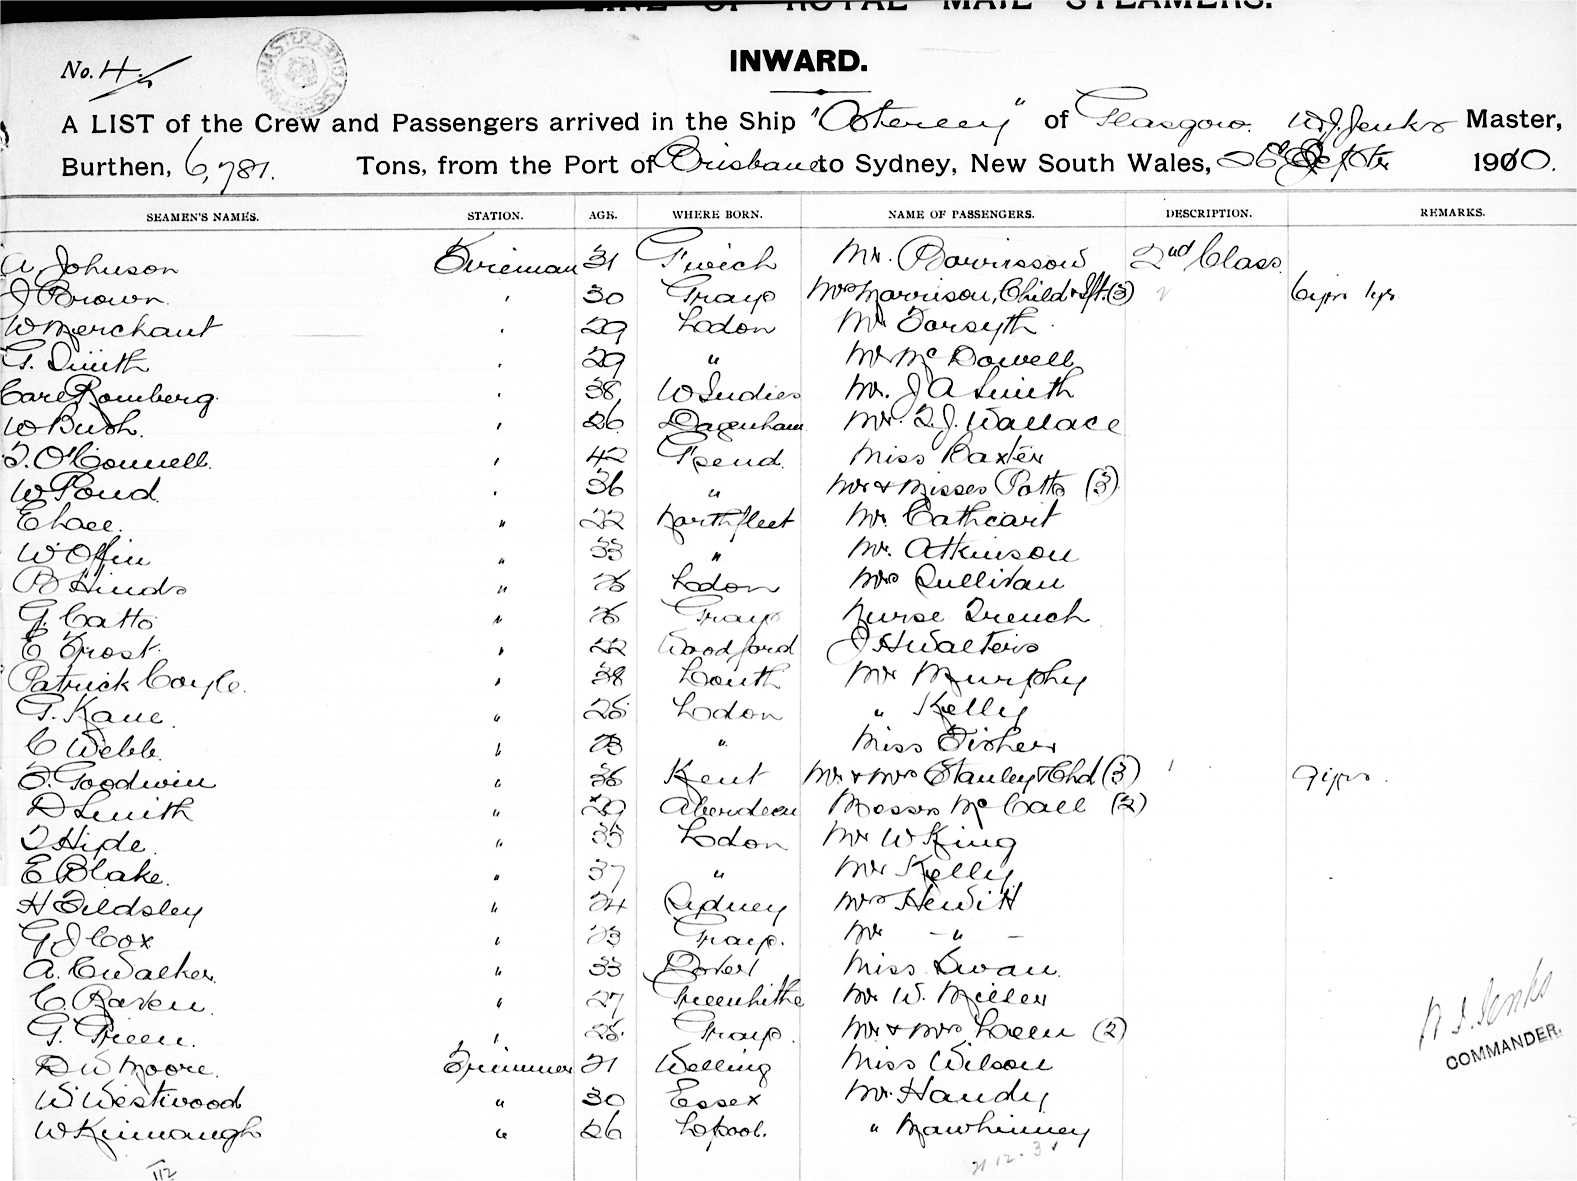 LINE OF ROYAL MAIL STEAMERS.
INWARD.
No. 4
A LIST of the Crew and Passengers arrived in the Ship "Oterey" of Glasgow. W.J. Jenks Master,
Burthen, 6,781. Tons, from the Port of Brisbane to Sydney, New South Wales, Septr 1900.
SEAMEN'S NAMES. STATION. AGE. WHERE BORN. NAME OF PASSENGERS. DESCRIPTION. REMARKS.
A Johnson Fireman 31 G'wich Mr. Morrison 2nd Class
J Brown " 30 Grays Mrs Morrison, Child & Ift. (3) 6yrs 1yr
W Merchant " 29 L'don Mr Forsyth
G. Smith " 29 " Mr Mc Dowell
Carl Romberg " 38 W Indies Mr. J A Smith
W Bush. " 26 Dagenham Mr. T.J. Wallace
T. O'Connell. " 42 G'send. Miss Baxter
W Pond. " 36 " Mr & Misses Potts (3)
E hace. " 22 Northfleet Mr. Cathcart
W Offin " 33 " Mr. Atkinson
B Hinds " 26 L'don Mrs Sullivan
G. Catto " 26 Grays Nurse Trench
E Frost. " 22 Woodford J H Walters
Patrick Coyle. " 38 Louth Mr Murphy
G. Kane. " 25 L'don " Kelly
C Webb. " 23 " Miss Fisher
F. Goodwin " 36 Kent Mr & Mrs Stanley & Chd (3) 9 yrs.
D Smith " 29 Aberdeen Messrs Mc Call (2)
T Hide. " 35 L'don Mr W King
E Blake. " 37 " Mr Kelly
H Tildsley " 24 Sydney Mrs Hewitt
G J Cox " 23 Grays. Mr - " -
A. C Walker. " 33 Dover Miss Swan.
C Raven. " 27 Greenhithe Mr W. Miller
G. Green. " 25 Grays. Mr & Mrs Leen (2)
D W Moore. Trimmer 21 Welling Miss Wilson
W Westwood " 30 Essex Mr. Handy
W Kinnaugh " 26 L'pool. " Mawhinney
W J. Jenks
COMMANDER.
112
21 12. 3